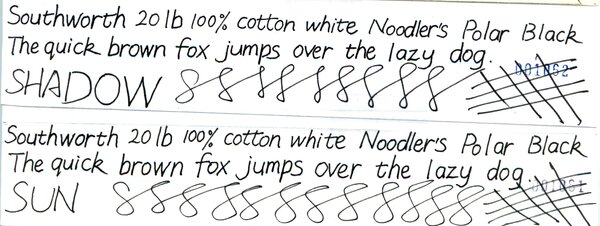 Southworth 20 lb 100% cotton white Noodler's Polar Black
The quick brown fox jumps over the lazy dog.
SHADOW
Southworth 20 lb 100% cotton white Noodler's Polar Black
The quick brown fox jumps over the lazy dog.
SUN